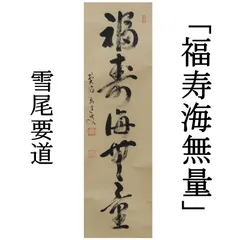 「福寿海無量」
福寿海無量
雪尾要道